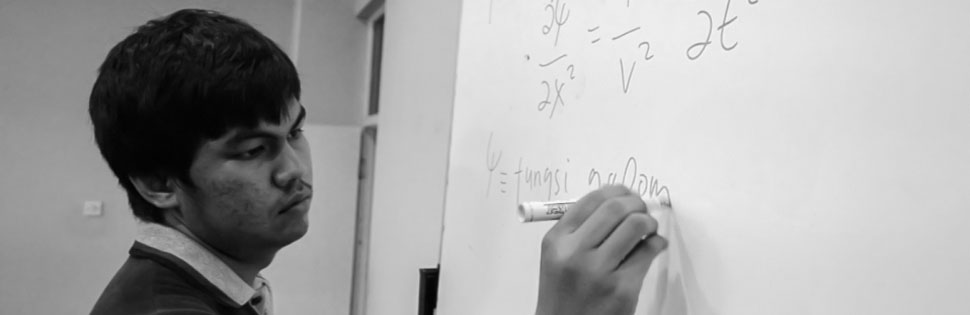 ∂ψ/∂x² = 1/V² ∂t²
ψ = fungsi gelom